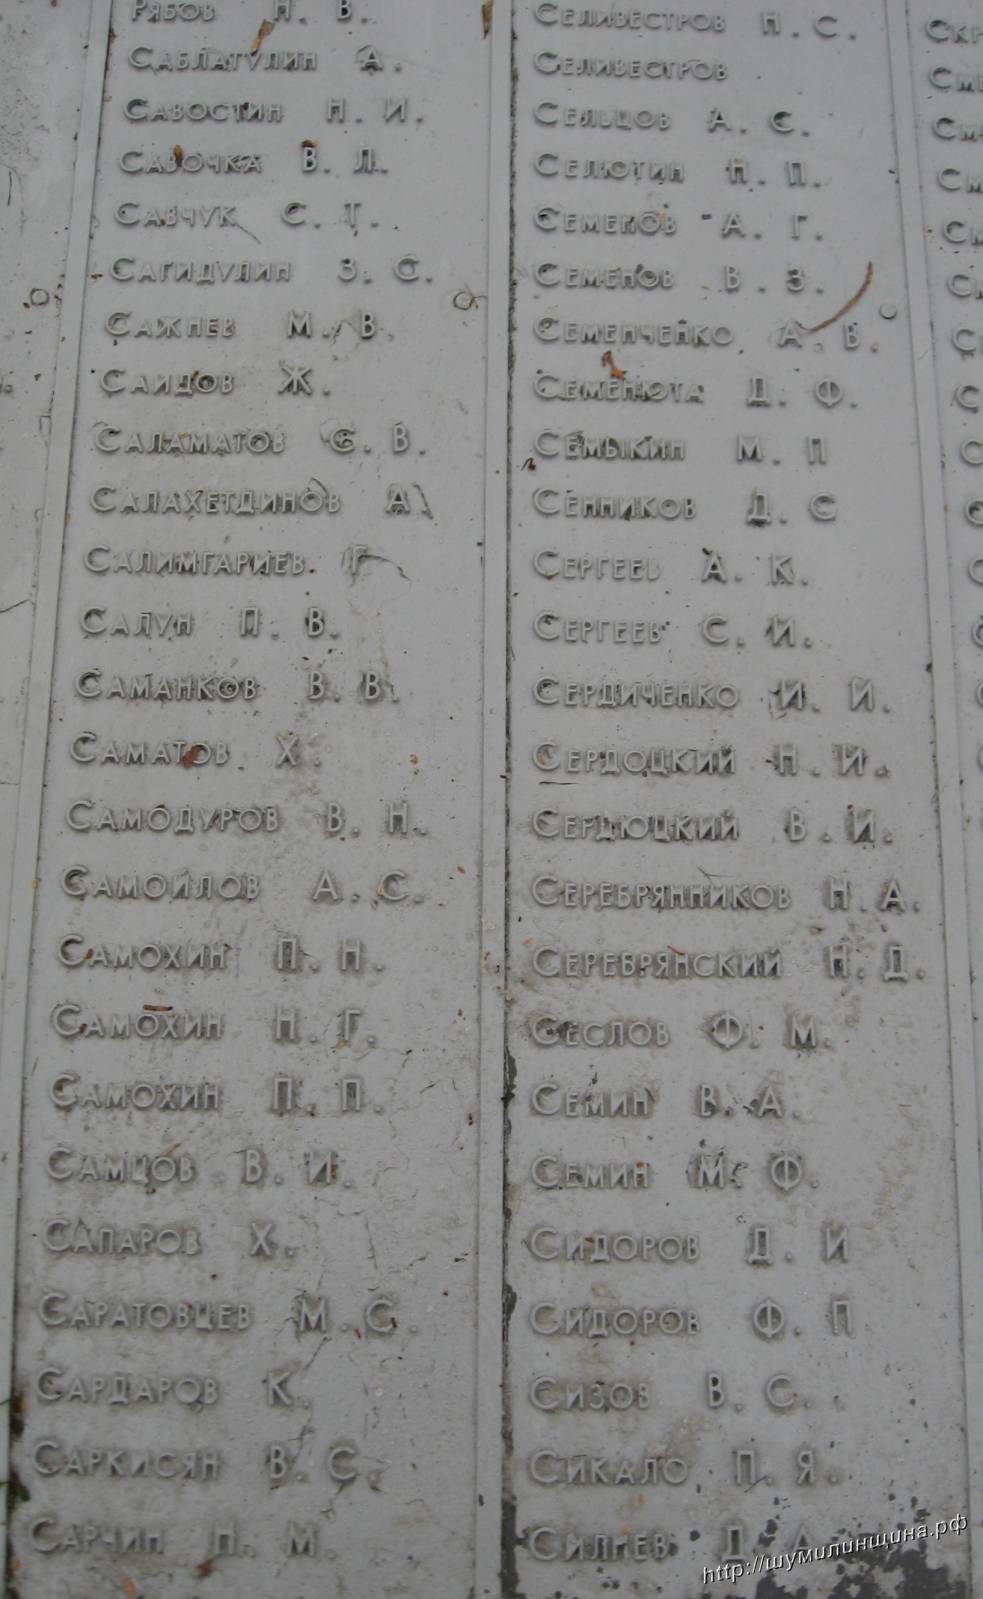 Рябов Н. В.
Саблатулин А.
Савостин Н. И.
Савочка В. Л.
Савчук С. Т.
Сагидулин З. С.
Сажнев М. В.
Саидов Ж.
Саламатов С. В.
Салахетдинов А
Салимгариев Г
Салун П. В.
Саманков В. В.
Саматов Х.
Самодуров В. Н.
Самойлов А. С.
Самохин П. Н.
Самохин Н. Г.
Самохин П. П.
Самцов В. И.
Сапаров Х.
Саратовцев М. С.
Сардаров К.
Саркисян В. С.
Сарчин П. М.
Селивестров Н. С.
Селивестров
Сельцов А. С.
Селютин Н. П.
Семенов А. Г.
Семенов В. З.
Семенченко А. В.
Семенюта Д. Ф.
Семыкин М. П
Сенников Д. С
Сергеев А. К.
Сергеев С. И.
Сердиченко И. И.
Сердоцкий Н. И.
Сердюцкий В. И.
Серебрянников Н. А.
Серебрянский Н. Д.
Сеслов Ф. М.
Семин В. А.
Семин М. Ф.
Сидоров Д. И
Сидоров Ф. П
Сизов В. С.
Сикало П. Я.
Силнев Д. А.
Скр
См
См
См
См
См
http://шумилинщина.рф